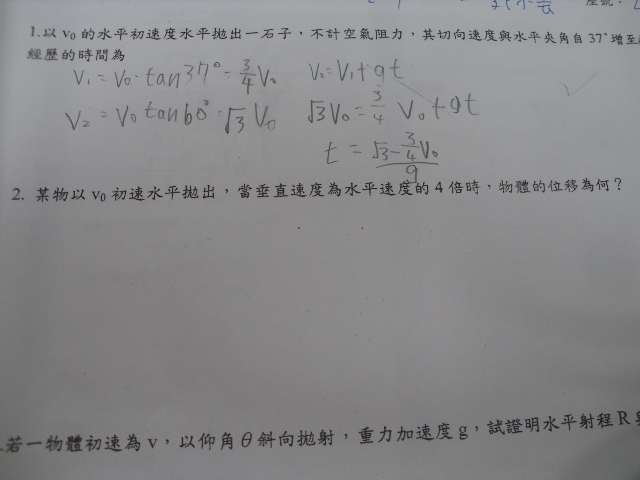 座號：
1.以 v₀ 的水平初速度水平拋出一石子，不計空氣阻力，其切向速度與水平夾角自 37° 增至
經歷的時間為
V₁ = V₀ · tan37° = 3/4 V₀ V₂ = V₁ + gt
V₂ = V₀ tan60° = √3 V₀ √3 V₀ = 3/4 V₀ + gt
t = (√3 - 3/4 V₀)/g
2. 某物以 v₀ 初速水平拋出，當垂直速度為水平速度的 4 倍時，物體的位移為何？
.若一物體初速為 v，以仰角 θ 斜向拋射，重力加速度 g，試證明水平射程 R